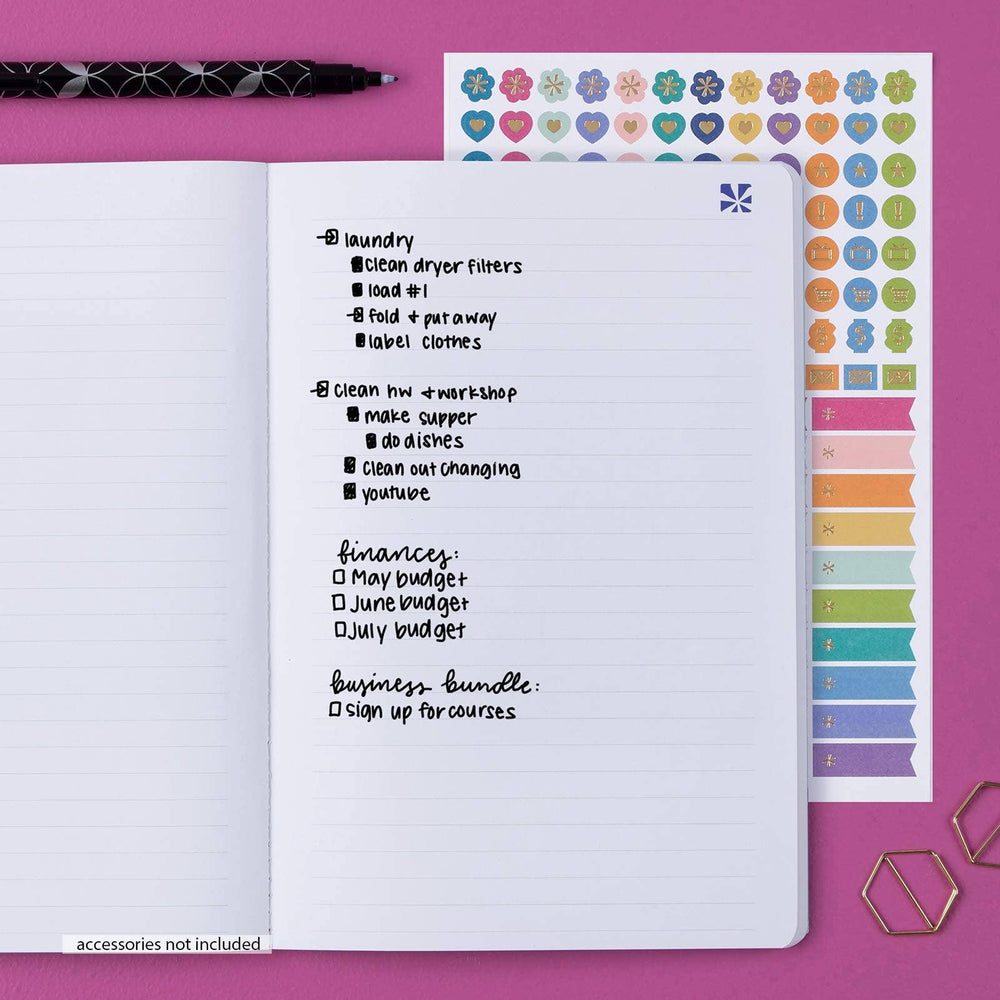 laundry
clean dryer filters
load #1
fold + put away
label clothes
clean hw + workshop
make supper
do dishes
clean out changing
youtube
finances:
May budget
June budget
July budget
business bundle:
sign up for courses
accessories not included